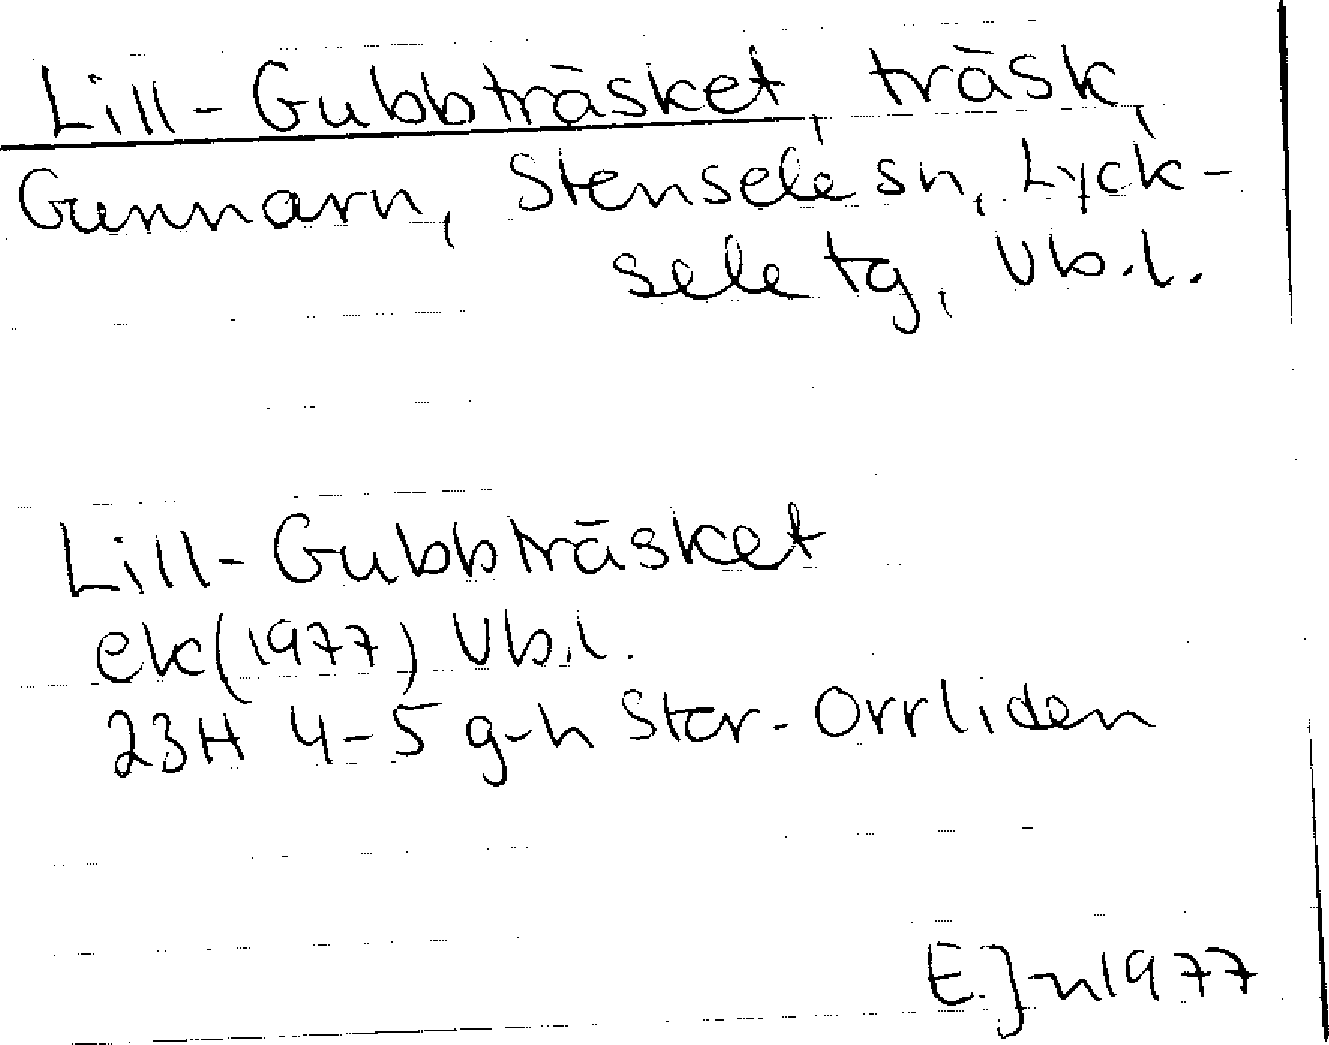 Lill-Gubbträsket, träsk,
Gunnarn, Stensele sn, Lyck-
sele tg, Vb.l.
Lill-Gubbträsket
ek(1977) Vb.l.
23H 4-5 g-h Stor-Orrliden
E.J-n 1977